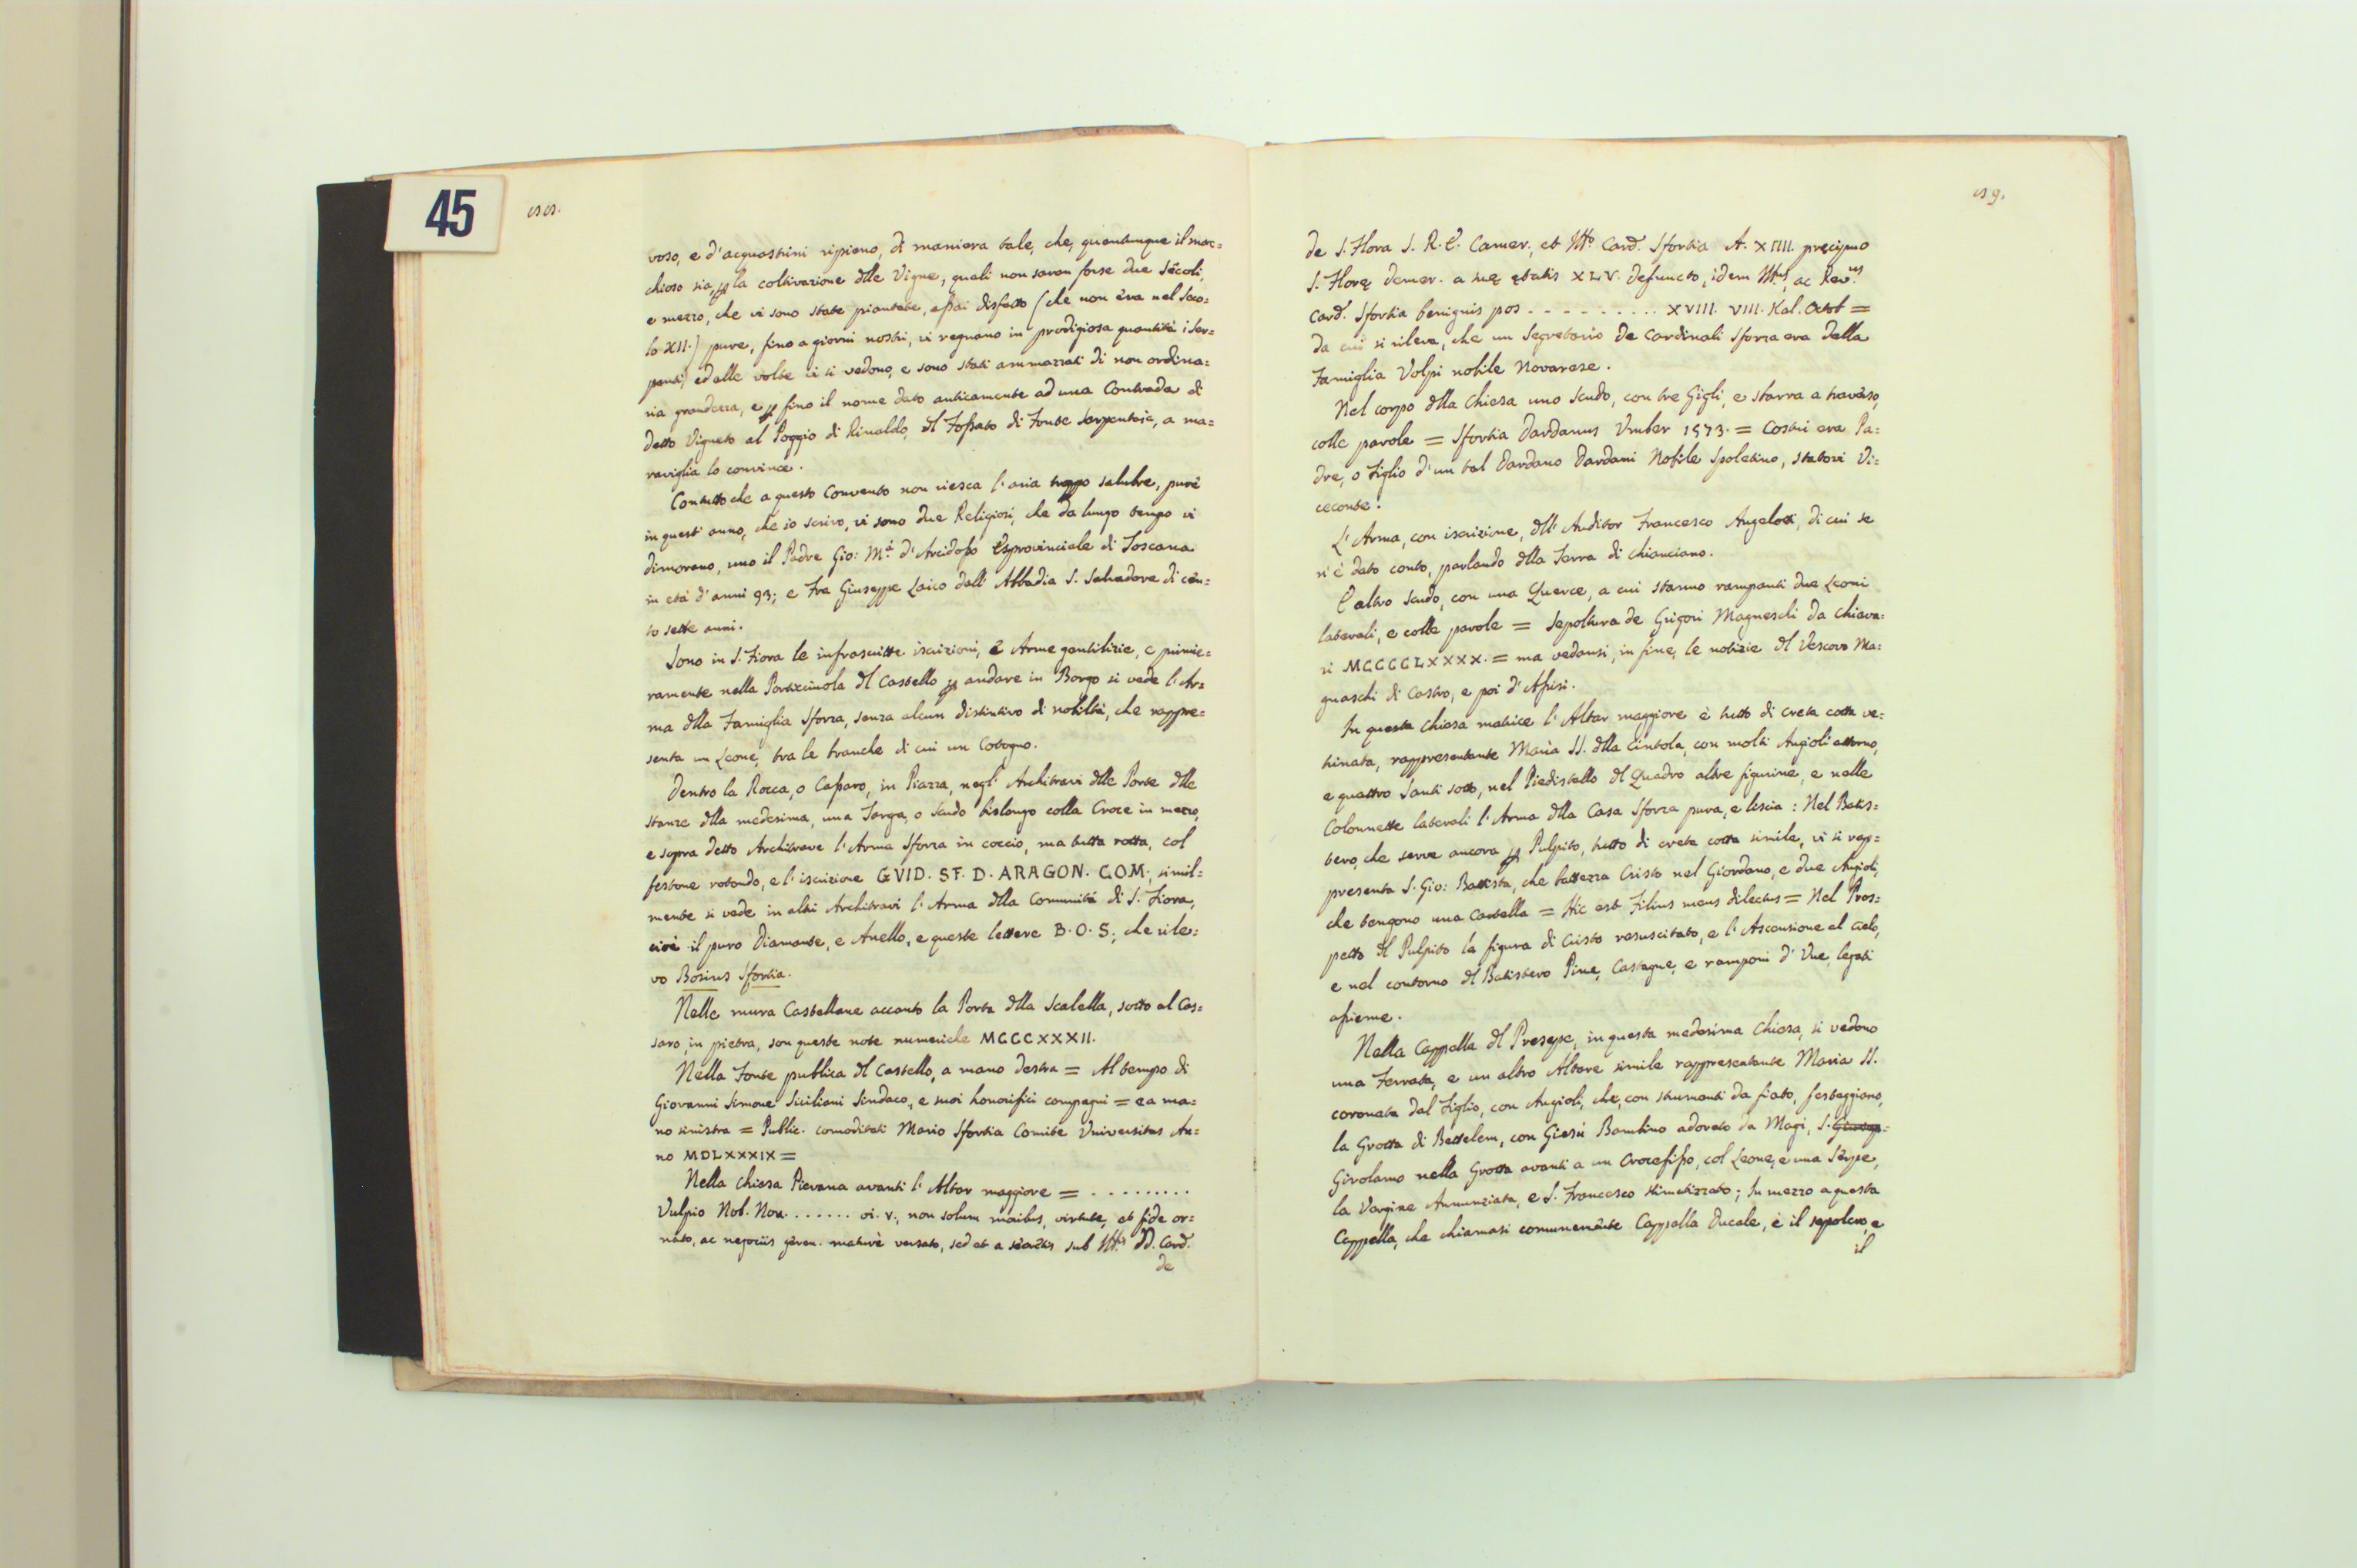 45
voso, e d'acquastrini ripieno, di maniera tale, che, quantunque il mac=
chioso sia, per la coltivazione dlle Vigne, quali non saran forse due Secoli,
e mezzo, che vi sono state piantate, assai disfatto (che non era nel Seco=
lo XII.) pure, fino a giorni nostri, vi regnano in prodigiosa quantità i Ser=
penti, ed alle volte vi si vedono, e sono stati ammazzati di non ordina=
ria grandezza, e per fino il nome dato anticamente ad una Contrada di
detto Vigneto al Poggio di Rinaldo, il Fossato di Fonte Serpentosa, a ma=
raviglia lo convince.
Contuttoche a questo Convento non riesca l'aria troppo salubre, pure
in quest'anno, che io scrivo, vi sono due Religiosi, che da lungo tempo vi
dimorano, uno il Padre Gio: M.ª d'Arcidosso Esprovinciale di Toscana
in età d'anni 93; e Fra Giuseppe Laico dall'Abbadia S. Salvadore di cen=
to sette anni.
Sono in S. Fiora le infrascritte iscrizioni, e Arme gentilizie, e primie=
ramente nella Porticciuola dl Castello per andare in Borgo si vede l'Ar=
ma dlla Famiglia Sforza, senza alcun distintivo di nobiltà, che rappre=
senta un Leone, tra le branche di cui un Cotogno.
Dentro la Rocca, o Cassaro, in Piazza, negl'Architravi dlle Porte dlle
stanze dlla medesima, una Targa, o Scudo bislongo colla Croce in mezzo,
e sopra detto Architrave l'Arma Sforza in coccio, ma tutta rotta, col
festone rotondo, e l'iscrizione GVID. SF. D. ARAGON. COM., simil=
mente si vede in altri Architravi l'Arma dlla Comunità di S. Fiora,
cioè il puro Diamante, e Anello, e queste lettere B.O.S., che rile=
vo Bosius Sfortia.
Nelle mura Castellane accanto la Porta dlla Scalella, sotto al Cas=
saro, in pietra, son queste note numeriche MCCCXXXII.
Nella Fonte publica dl Castello, a mano destra = Al tempo di
Giovanni Simone Siciliani Sindaco, e suoi honorifici compagni = e a ma=
no sinistra = Public. comoditati Mario Sfortia Comite Universitas An=
no MDLXXXIX =
Nella Chiesa Pievana avanti l'Altar maggiore = .........
Vulpio Nob. Nov. ...... oi. v., non solum moribus, virtute, et fide or=
nato, ac negociis geren. maturè versato, sed et a secretis sub Ill.ris DD. Card.
de
de S. Flora S. R. E. Camer., et Ill.º Card. Sfortia A. XIIII. precipuo
S. Florę demer. a suę ętatis XLV. defuncto, idem Ill.us, ac Rev.us
Card. Sfortia benignis pos .......... XVIII. VIII. Kal. Octob =
da cui si rileva, che un Segretario de Cardinali Sforza era della
Famiglia Volpi nobile Novarese.
Nel corpo dlla Chiesa uno Scudo, con tre Gigli, e sbarra a traverso,
colle parole = Sfortia Dardanus Vmber 1573. = Costui era Pa=
dre, o Figlio d'un tal Dardano Dardani Nobile Spoletino, stato vi Vi=
ceconte.
L'Arma, con iscrizione, dll'Auditor Francesco Angelotti, di cui se
n'è dato conto, parlando dlla Terra di Chianciano.
E altro Scudo, con una Querce, a cui stanno rampanti due Leoni
laterali, e colle parole = Sepoltura de Grigori Magneschi da Chiava=
ri MCCCCLXXXX. = ma vedansi, in fine, le notizie dl Vescovo Ma=
gnaschi di Castro, e poi d'Assisi.
In questa Chiesa matrice l'Altar maggiore è tutto di creta cotta ve=
trinata, rappresentante Maria SS. dlla Cintola, con molti Angioli attorno,
e quattro Santi sotto, nel Piedistallo dl Quadro altre figurine, e nelle
Colonnette laterali l'Arma dlla Casa Sforza pura, e liscia: Nel Batis=
tero, che serve ancora per Pulpito, tutto di creta cotta simile, vi si rap=
presenta S. Gio: Battista, che battezza Cristo nel Giordano, e due Angioli,
che tengono una Cartella = Hic est Filius meus dilectus = Nel Pros=
petto dl Pulpito la figura di Cristo resuscitato, e l'Ascensione al Cielo,
e nel contorno dl Batistero Pine, Castagne, e ramponi d'Vue, legati
assieme.
Nella Cappella dl Presepe, in questa medesima Chiesa, si vedono
una Ferrata, e un altro Altare simile rappresentante Maria SS.
coronata dal Figlio, con Angioli, che, con strumenti da fiato, festeggiano,
la Grotta di Bettelem, con Giesù Bambino adorato da Magi, S. Giusep=
Girolamo nella Grotta avanti a un Crocefisso, col Leone, e una Serpe,
la Vergine Annunziata, e S. Francesco stimatizzato; In mezzo a questa
Cappella, che chiamasi comunemente Cappella Ducale, è il sepolcro, e
il